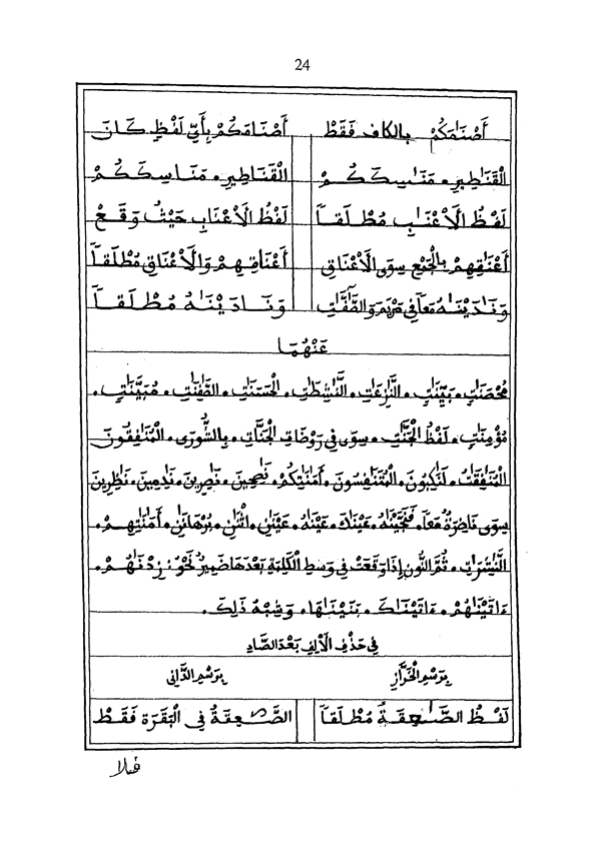 24
أَصْنَٰمَكُمْ بالكاف فَقَطْ أَصْنَامَكُمْ بِأَيِّ لَفْظٍ كَانَ
الْقَنَٰطِيرِ . مَنَٰسِكَكُمْ الْقَنَاطِيرِ . مَنَاسِكَكُمْ
لَفْظُ الَاعْنَٰبِ مُطْلَقاً لَفْظُ الَاعْنَابِ حَيْثُ وَقَعْ
أَعْنَٰقِهِمْ بِالْجَمْعِ سِوَى الَاعْنَاقِ أَعْنَاقِهِمْ وَالَاعْنَاقِ مُطْلَقاً
وَنَٰدَيْنَٰهُ مَعاً فِي مَرْيَمَ وَالصَّٰفَّٰتِ وَنَادَيْنَٰهُ مُطْلَقاً
عَنْهُمَا
مُحْصَنَٰتٍ . بَيِّنَٰتٍ . النَّٰزِعَٰتِ . النَّٰشِطَٰتِ . الْحَسَنَٰتِ . الصَّٰفِنَٰتِ . مُبَيَّنَٰتٍ .
مُؤْمِنَٰتٍ . لَفْظُ الْجَنَّٰتِ . سِوَى فِي رَوْضَاتِ الْجَنَّاتِ . بِالشُّورَى . الْمُنَٰفِقُونَ
الْمُنَٰفِقَٰتُ . لَنَٰكِبُونَ . الْمُتَنَٰفِسُونَ . أَمَٰنَٰتِكُمْ . نَٰصِحِينَ . نَٰصِرِينَ . نَٰدِمِينَ . نَٰظِرِينَ
سِوَى نَاضِرَةٌ مَعاً . فَنَجَّيْنَٰهُ . عَيْنَٰكَ . عَيْنَٰهُ . عَيْنَٰنِ . اثْنَٰنِ . بُرْهَٰنَٰنِ . أَمَٰنَٰتِهِمْ .
النَّٰشِرَٰتِ . ثُمَّ النُّونِ إِذَا وَقَعَتْ فِي وَسَطِ الْكَلِمَةِ بَعْدَهَا ضَمِيرٌ نَحْوُ : زِدْنَٰهُمْ .
ءَاتَيْنَٰهُمْ . ءَاتَيْنَٰكَ . بَنَيْنَٰهَا . وَشِبْهُ ذَلِكَ .
فِي حَذْفِ الَالِفِ بَعْدَ الصَّادِ
بِرَسْمِ الْخَرَّازِ بِرَسْمِ الدَّانِي
لَفْظُ الصَّٰعِقَةُ مُطْلَقاً الصَّٰعِقَةُ فِي الْبَقَرَةِ فَقَطْ